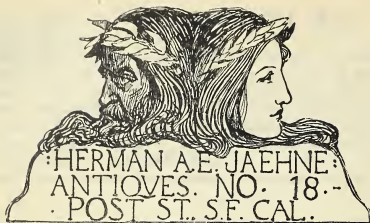 :HERMAN A.E. JAEHNE:
ANTIQVES. NO. 18.-
· POST ST., S.F. CAL.·